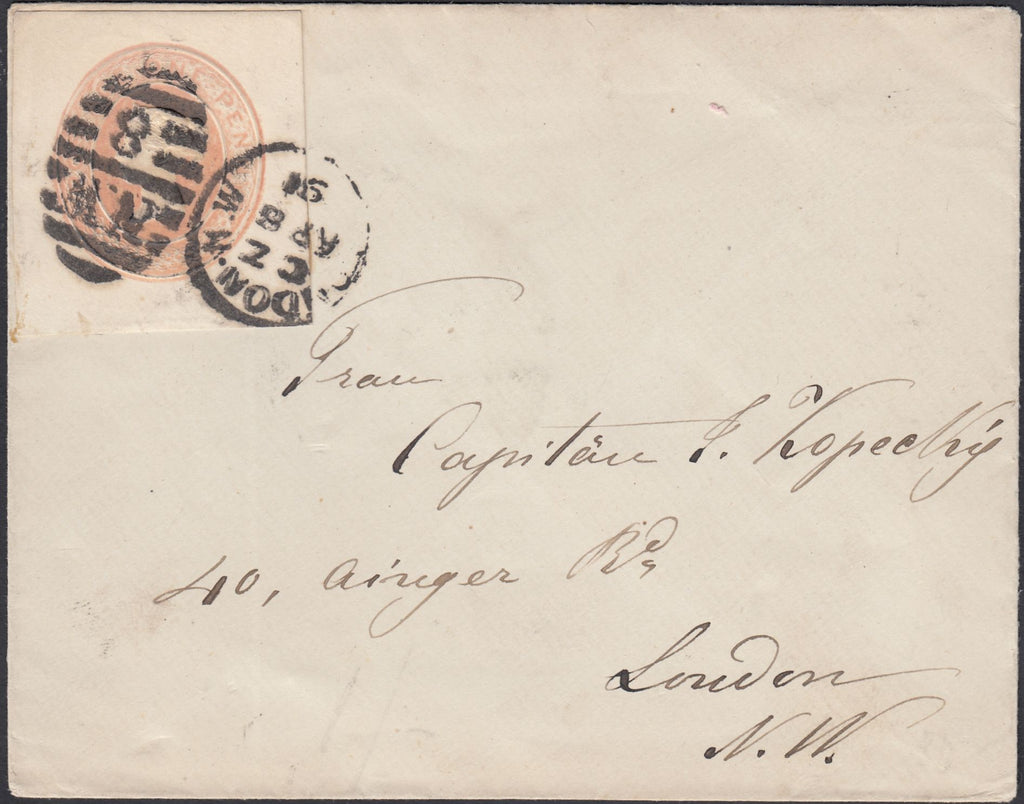 ONE PEN
8
N.W
LONDON.N.W.
C Z
AP 8
91
Frau
Capitän J. Kopecký
40, Ainger Rd,
London
N. W.